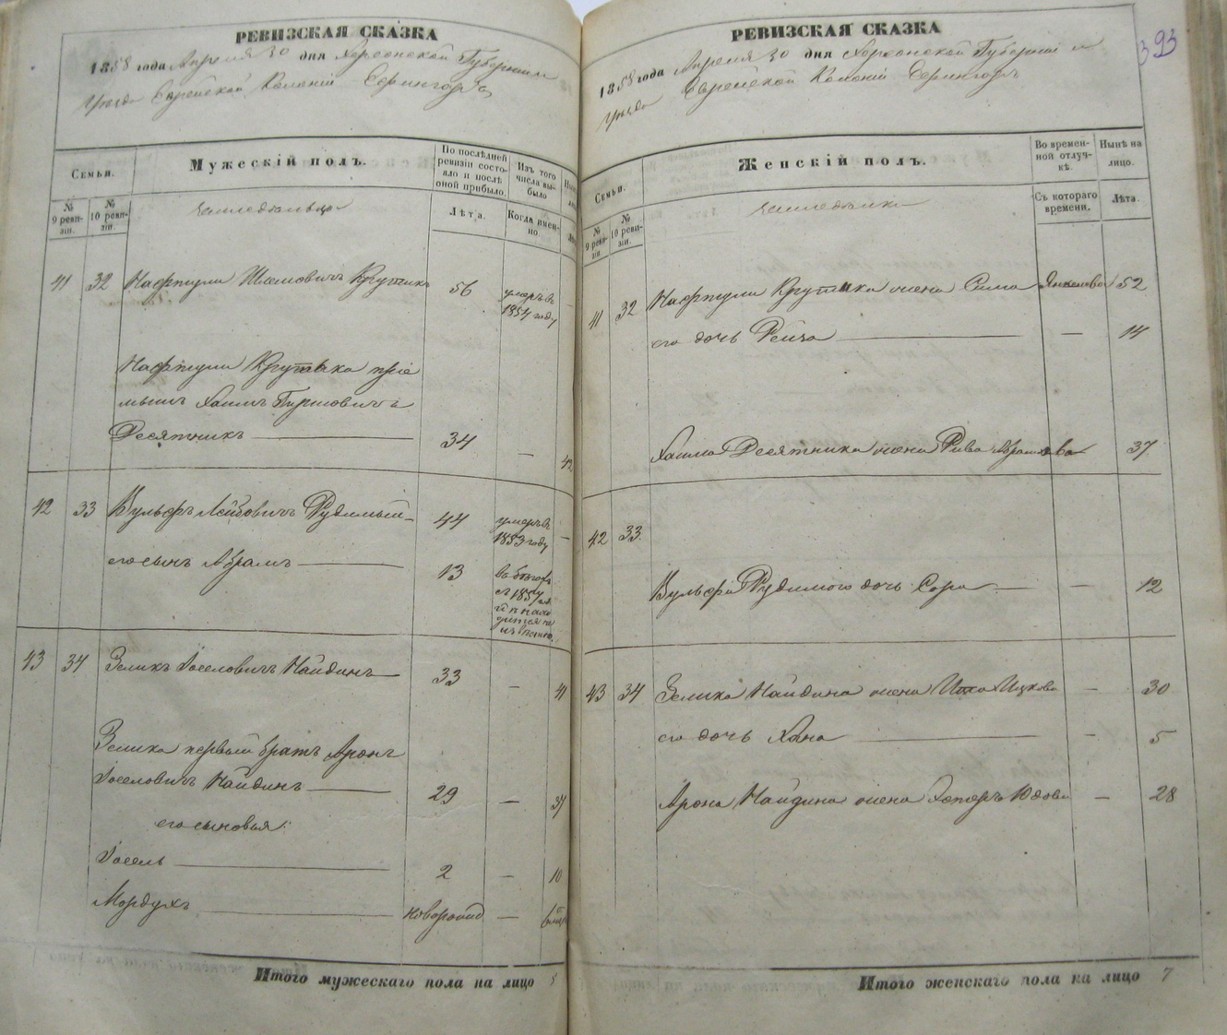 РЕВИЗСКАЯ СКАЗКА
1858 года Апреля 30 дня Херсонской Губернии и
Уезда Еврейской Колонии
Мужескій полъ.
Семьи.
По послѣдней ревизіи состояло и послѣ оной прибыло.
Изъ того числа выбыло
№ 9 ревизіи.
№ 10 ревизіи.
Лѣта.
Когда именно.
41 32 Нафтули Шлемовичъ Крутика 56 умеръ въ 1854 году
Нафтули Крутика пріе
мышъ Хаимъ
Десятникъ 34 —
42 33 Вульфъ Лейбовичъ Рудимый 44 умеръ въ 1853 году —
его сынъ Абрамъ 13
43 34 Зеликъ Іоселовичъ Найдинъ 33 — 41
Зелика первый братъ Аронъ
Іоселовичъ Найдинъ 29 — 37
его сыновья:
Іосель 2 — 10
Мордухъ новорожд —
Итого мужескаго пола на лицо 5
РЕВИЗСКАЯ СКАЗКА
393
1858 года Апреля 30 дня Херсонской Губерніи и
Уезда Еврейской Колоніи
Женскій полъ.
Семьи.
Во временной отлучкѣ.
Нынѣ на лицо.
№ 9 ревизіи
№ 10 ревизіи.
Съ котораго времени.
Лѣта.
41 32 Нафтули Крутика жена Сима 52
его дочь Рейза — 14
Хаима Десятника жена Рива Абрамова 37
42 33
Вульфа Рудимого дочь Сора — 12
43 34 Зелика Найдина жена Ицкова — 30
его дочь Хана — 5
Арона Найдина жена Эстеръ Юдова — 28
Итого женскаго пола на лицо 7